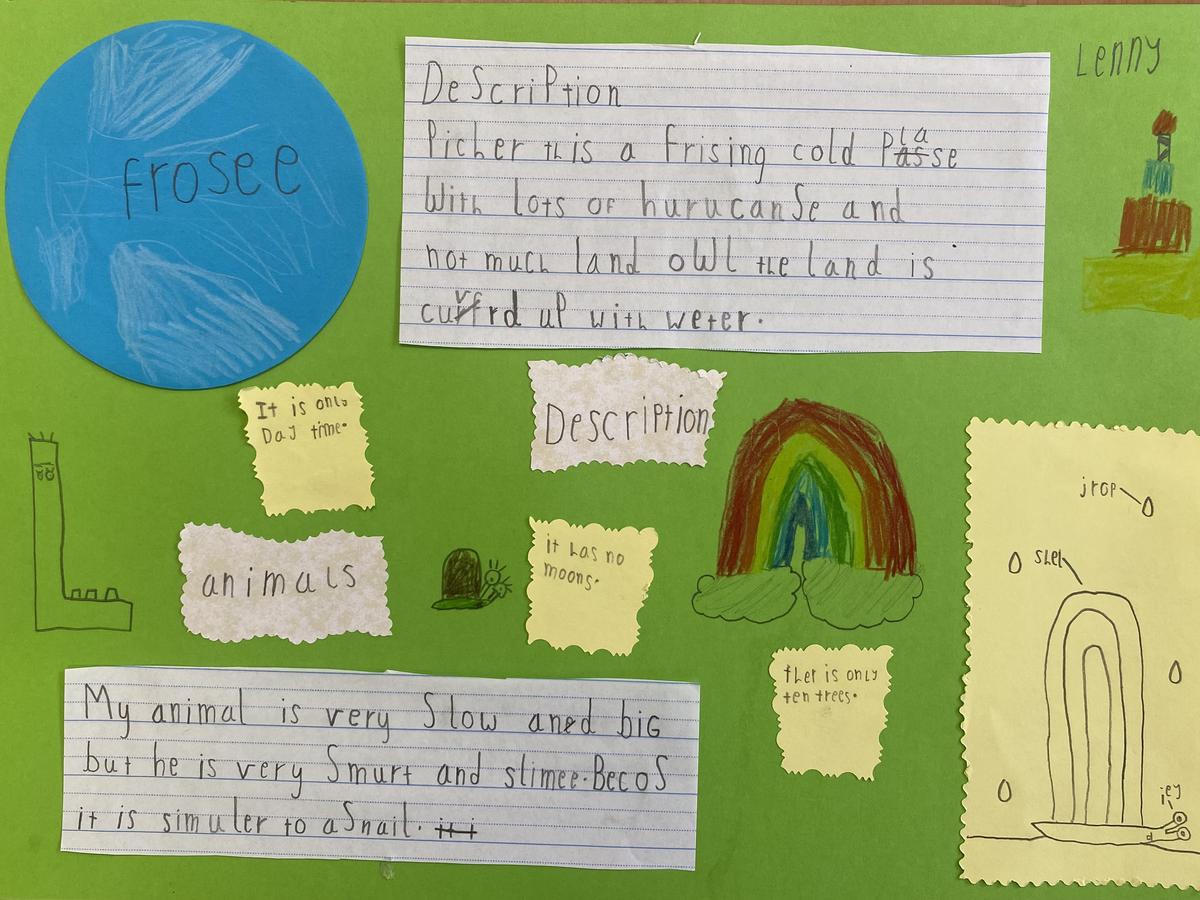 frosee
Lenny
DeScriPtion
Picher this is a frising cold Plasse
With lots of hurucanSe and
not much land owl the land is
cuvrd up with weter.
It is only
Day time.
Description
animals
it has no
moons.
ther is only
ten trees.
My animal is very Slow aned big
but he is very Smurt and slimee. BecoS
it is simuler to a Snail. it i
jrop
shel
iey